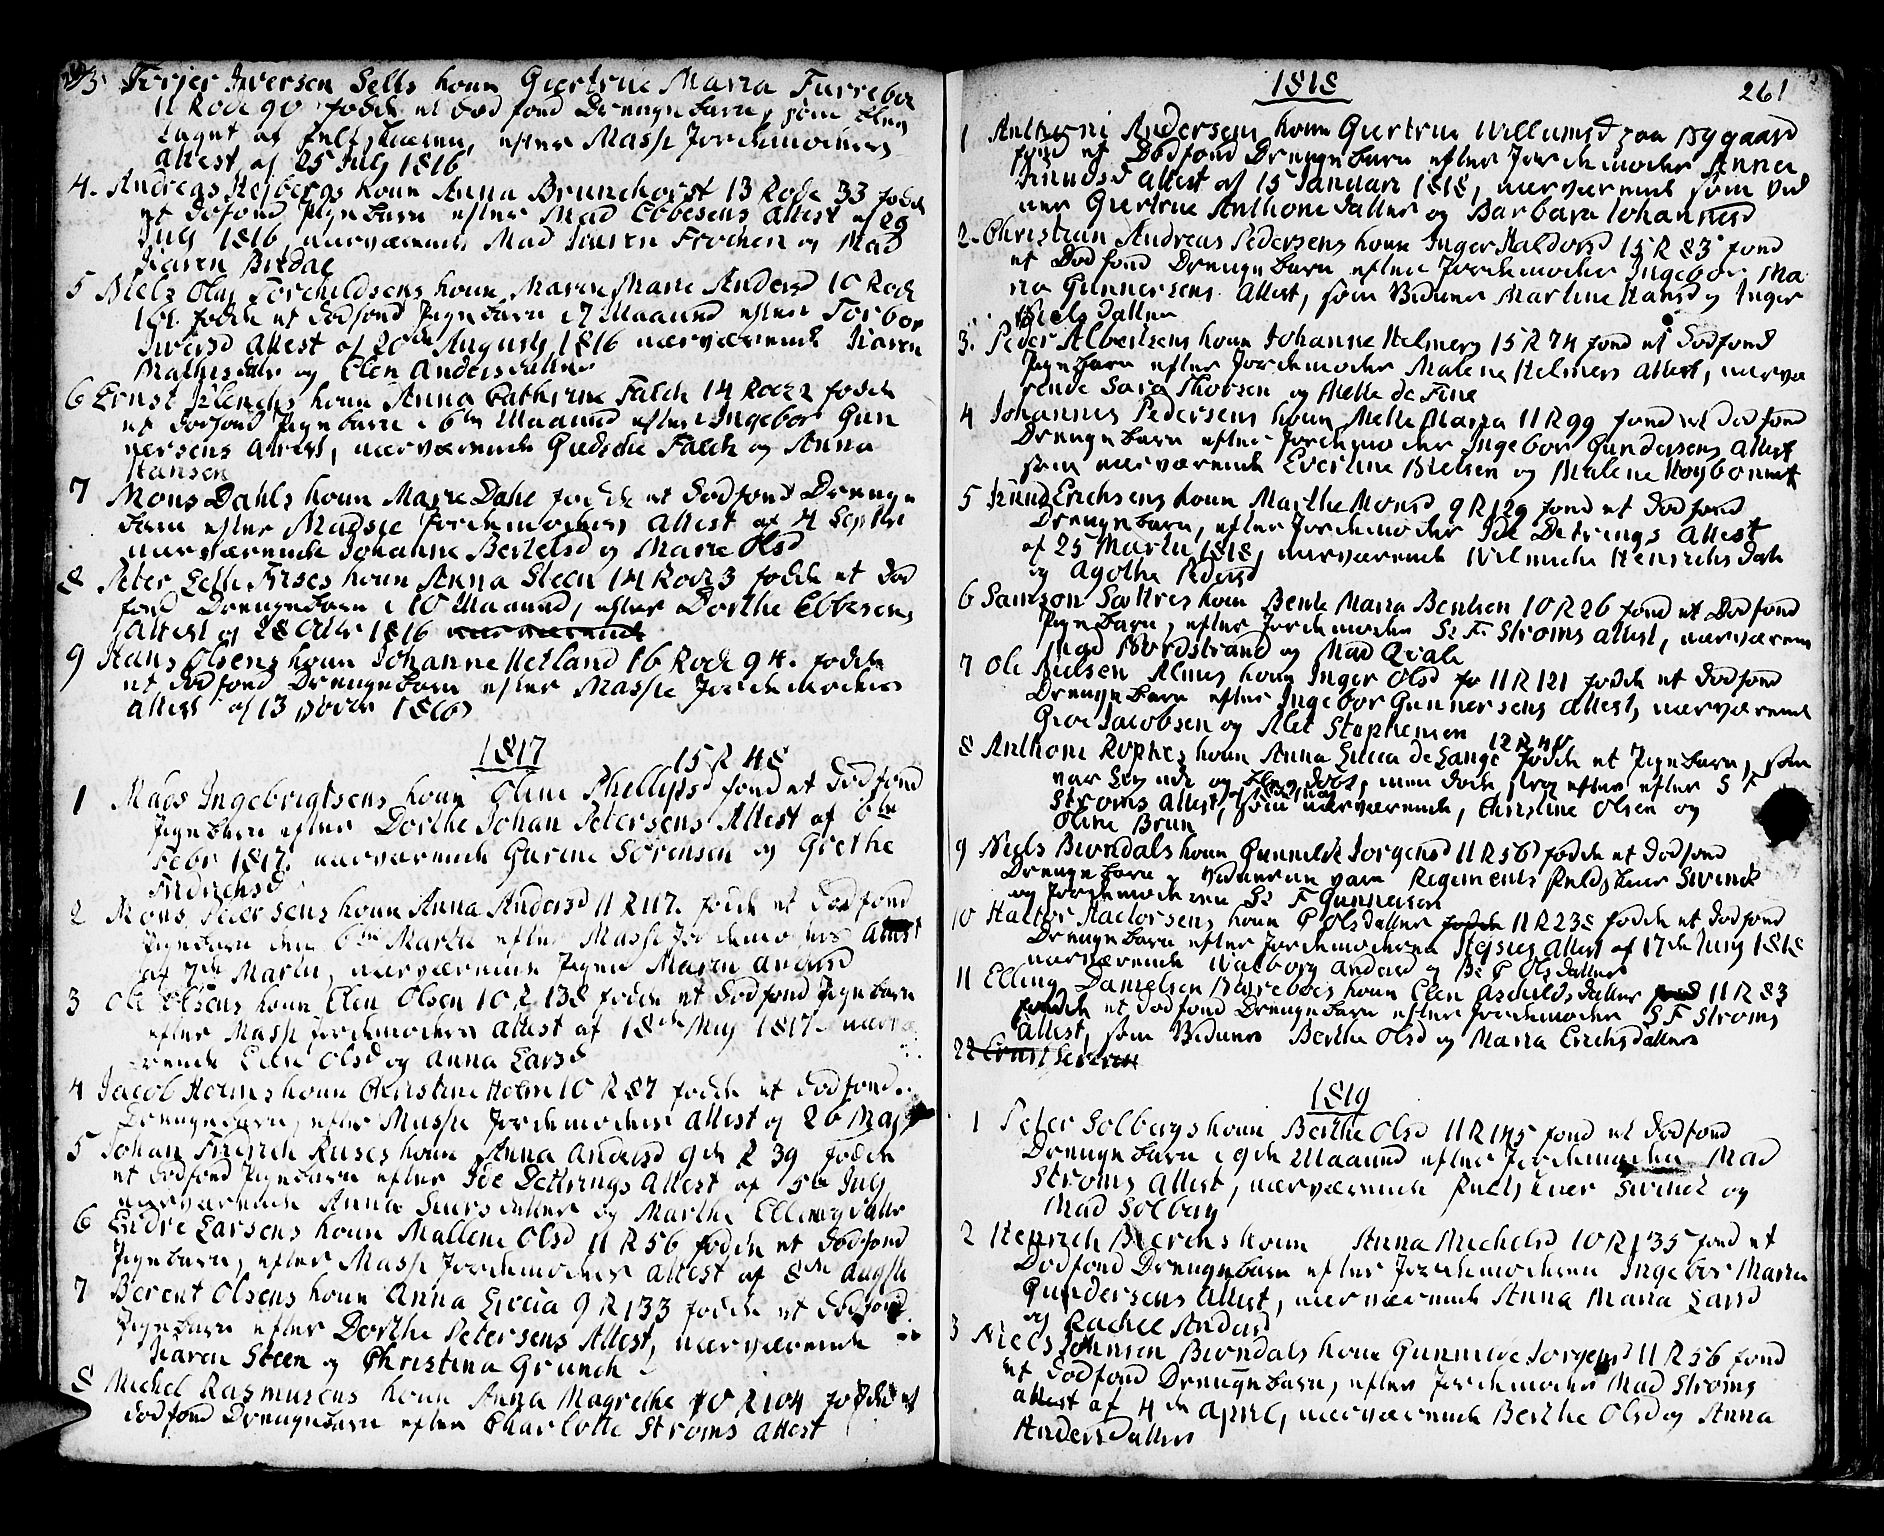 3 Terjer Iversen Sells kone Giertrue Maria Furreboe
11 Rode 90 fødde et død fond Drengebarn, som blev
taget af feltskiæren, efter Massie Jordemoders
Attest af 25 July 1816
4. Andreas Hejbergs kone Anna Brunchorst 13 Rode 33 fødde
et dødfond Pigebarn efter Mad Ebbesens attest af 29
July 1816, nærværende Mad Karen Frochen og Mad
Karen Bredal
5 Niels Olai Torchildsens kone Maren Marie Andersd 10 Rode
101 fødde et dødfond Pigebarn i 7 Maaned efter Torbor
Iversd attest af 20de Augusty 1816 nærværende Karen
Mathisdatr og Elen Andersdatter
6 Ernst Klencks kone Anna Cathrine Falch 14 Rode 2 fødde
et dødfond Pigebarn i 6te Maaned efter Ingebor Gun
nersens attest, nærværende Giedsche Falch og Anna
Hansen
7 Mons Dahls kone Marie Dahl fødde et dødfond Drenge
barn efter Madsie Jordemoders attest af 4 Septbr
nærværende Johanne Bertelsd og Marie Olsd
8 Peter Frises kone Anna Steen 14 Rode 3 fødde et død
fond Drengebarn i 10 Maaned, efter Dorthe Ebbesens
attest af 28 Octbr 1816 nærværende
9 Hans Olsens kone Johanne Hetland 16 Rode 94. fødde
et død fond Drengebarn efter Massie Jordemoders
attest af 13 1816
1817
15 R 48
1 Mads Ingebrigtsens kone Oline Phellipsd fond et dødfond
Pigebarn efter Dorthe Johan Petersens Attest af 6te
Febr 1817. nærværende Gurine Sørensen og Grethe
Fridrichsd
2 Mons Petersens kone Anna Andersd 11 R 117. fødde et dødfond
Pigebarn den 6te Martii efter Massie Jordemoders attest
af 7de Martii, nærværende Pigen Maren Andersd
3 Ole Olsens kone Elen Olsen 10 R 138 fødde et dødfond Pigebarn
efter Massie Jordemoders attest af 18de May 1817. nærvæ
rende Elen Olsd og Anna Larsd
4 Jacob Holms kone Christine Holm 10 R 87 fødde et dødfond
Drengebarn, efter Massie Jordemoders attest af 26 May
5 Johan Fridrich Ruses kone Anna Andersd 9de R 39 fødde
et dødfond Pigebarn efter Ide Dettrings Attest af 5te July
nærværende Anna Siursdatter og Marthe Ellingsdatter
6 Endre Larsens kone Mallene Olsd 11 R 56 fødde et dødfond
Pigebarn, efter Massie Jordemoders attest af 8de Augste
7 Berent Olsens kone Anna Lucia 9 R 133 fødde et dødfond
Pigebarn efter Dorthe Petersens Attest, nærværende
Karen Steen og Christina Grunch
8 Michel Rasmusens kone Anna Magrethe 10 R 104 fødde et
dødfond Drengebarn efter Charlotte Strøms attest
1818
261
1 Anthoni Andersens kone Giertrue Willumsd paa Nygaard
fød et Dødfond Drengebarn efter Jordemoder Anna
Knudsd attest af 15 Januari 1818, nærværende som vid
ner Giertrue Anthonedatter og Barbara Johannesd
2. Christian Andreas Pedersens kone Inger Haldorsd 15 R 83 fond
et Dødfond Drengebarn efter Jordemoder Ingebor Ma
ria Gunnersens Attest, som Vidner Martine Hansd og Inger
Nielsdatter
3. Peder Albertsens kone Johanne Helmers 15 R 74 fond et dødfond
Pigebarn efter Jordemoder Malene Helmers attest, nærvæ
rende Sara Thorsen og Melle de Fine
4 Johannes Pedersens kone Melle Maria 11 R 99 fond et dødfond
Drengebarn efter Jordemoder Ingebor Gundersens attest
som nærværende Everline Nielsen og Malene
5 Knud Erichsens kone Marthe Monsd 9 R 129 fond et dødfond
Drengebarn, efter Jordemoder Ide Detrings Attest
af 25 Martii 1818, nærværende Wilmiche Henrichsdatr
og Agothe Pedersd
6 Samson Sættres kone Bente Maria Bentsen 10 R 26 fond et Dødfond
Pigebarn, efter Jordemoder Sr F. Strøms attest, nærværend
Mad Nordstrand og Mad Qvale
7 Ole Nielsen Almes kone Inger Olsd 11 R 121 fødde et dødfond
Drengebarn efter Ingebor Gunnersens attest, nærværend
Giert Jacobsen og Alet Stephensen
12 R 40
8 Anthoni Rophes kone Anna Lucia de Lange fødde et Pigebarn, som
var levende og blev døbt, men døde strax efter efter S F
Strøms attest, som nærværende, Christine Olsen og
Oline Brun
9 Niels Biørndals kone Gunnilde Jørgensd 11 R 56 fødde et dødfond
Drengebarn, Vidnerne vare Regiments feldskiær Swinck
og Jordemoderen Sr F Gunnersen
10 Haldor Haldorsens kone P Olsdatter fødde 11 R 238 fødde et dødfond
Drengebarn efter Jordemoderen attest af 17de Juny 1818
nærværende Walborg Andersd og Br P Olsdatter
11 Elling Danielsen kone Elen Aschildsdatter fød 11 R 83
fødde et dødfond Drengebarn efter Jordemoder S F Strøms
Attest, som Vidner Berthe Olsd og Maria Erichsdatter
22 Ernst
1819
1 Peter Solbergs kone Berthe Olsd 11 R 145 fond et dødfond
Drengebarn i 9de Maaned efter Jordemoder Mad
Strøms Attest, nærværende Feldskiær Swinck og
Mad Solberg
2 Henrich Bierchs kone Anna Michelsd 10 R 135 fond et
Dødfond Drengebarn efter Jordemoderen Ingebor Maria
Gundersens Attest, nærværende Anna Maria Larsd
og Rachel Andersd
3 Niels Johnsen Biørndals kone Gunnilde Jørgensd 11 R 56 fond
et dødfond Drengebarn, efter Jordemoder Mad Strøms
attest af 4de Aprill, nærværende Berthe Olsd og Anna
Andersdatter